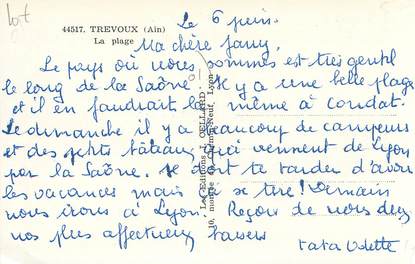 lot
44517. TREVOUX (Ain)
La plage
Le 6 juin.
Ma chère Jany.
Le pays où nous sommes est très gentil
le long de la Saône. Il y a une belle plage
et il en faudrait la même à Condat.
Le dimanche il y a beaucoup de campeurs
et des petits bateaux qui viennent de Lyon
par la Saône. Il doit te tarder d'avoir
les vacances mais se tire! Demain
nous irons à Lyon. Reçois de nous deux
nos plus affectueux baisers
tata Odette
Les Editions CELLARD
10, montée du Chemin-Neuf, Lyon